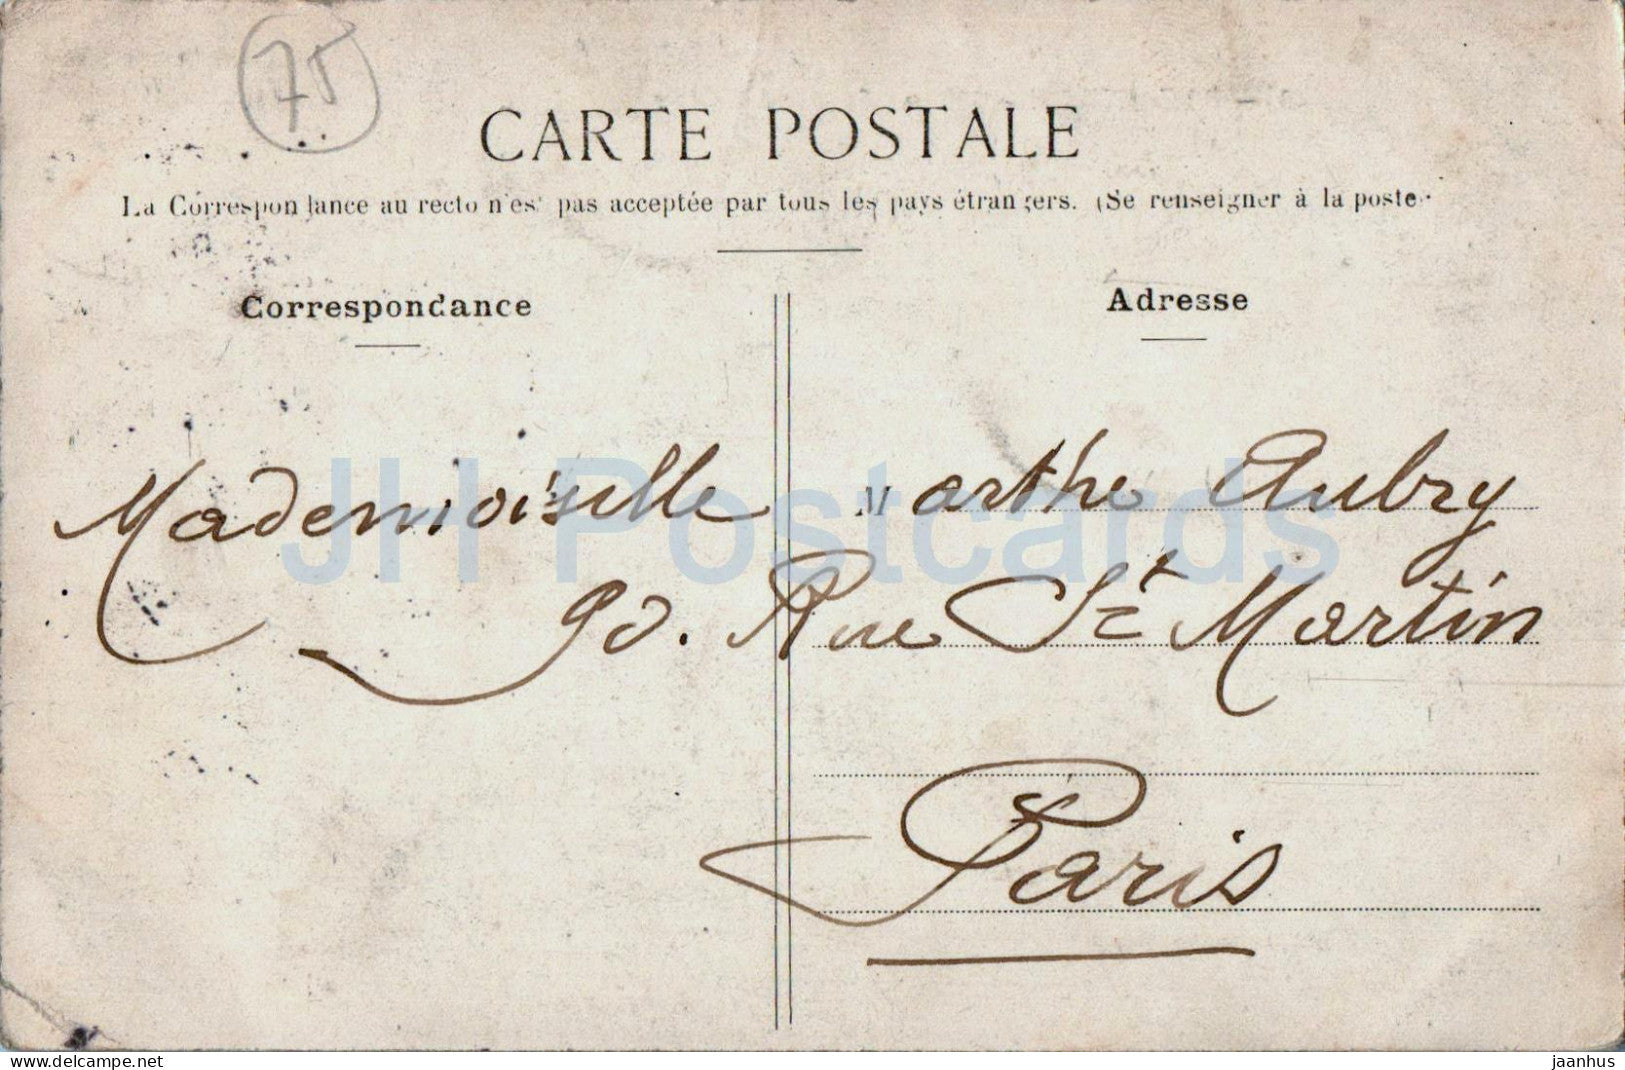 75
CARTE POSTALE
La Correspondance au recto n'est pas acceptée par tous les pays étrangers. (Se renseigner à la poste
Correspondance
Adresse
Mademoiselle Marthe Aubry
90. Rue St Martin
Paris
JH Postcards
delcampe.net
jaanhus